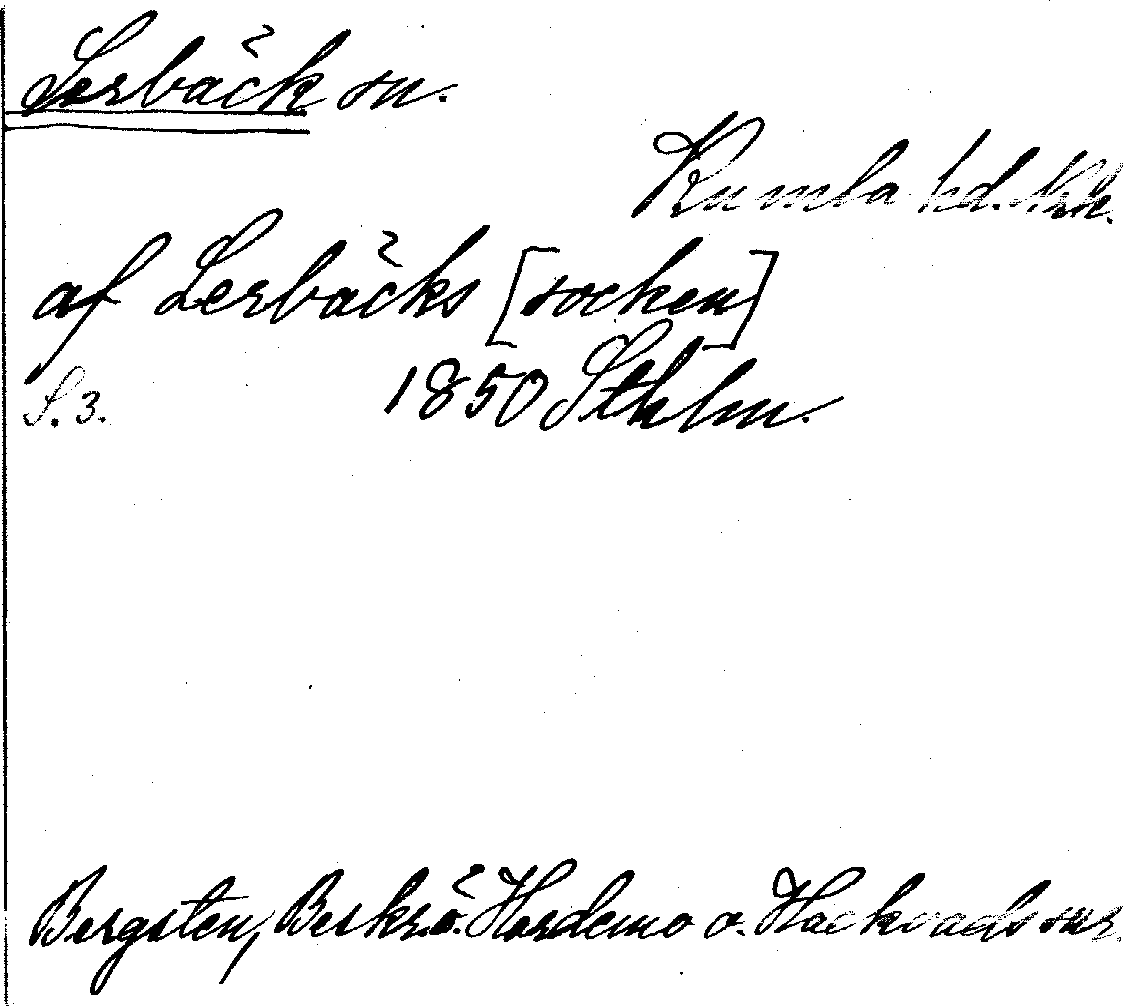 Lerbäck sn.
Kumla hd. Nrk.
af Lerbäcks [socken]
S. 3. 1850 Sthlm.
Bergsten, Beskr. ö. Hardemo o. Hackvads snr.